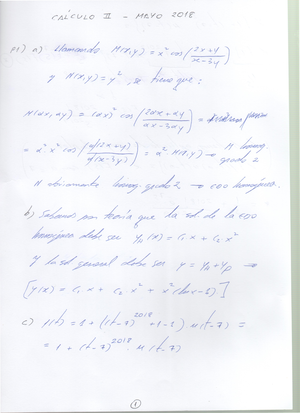 CÁLCULO II - MAYO 2018
P1) a) Llamando M(x,y) = x² cos(2x+y / x-3y)
y N(x,y) = y², se tiene que:
M(αx,αy) = (αx)² cos(2αx+αy / αx-3αy) =
= α² x² cos(α(2x+y) / α(x-3y)) = α² M(x,y) → M homog. grado 2
N obviamente homog. grado 2 → EDO homogénea.
b) Sabemos por teoría que la sol de la EDO
homogénea debe ser y_H(x) = C₁ x + C₂ x²
y la sol general debe ser y = y_H + y_P →
[y(x) = C₁ x + C₂ x² + x² (ln x - 1)]
c) f(t) = 1 + ((t-7)²⁰¹⁸ + 1 - 1) u(t-7) =
= 1 + (t-7)²⁰¹⁸ · u(t-7)
1